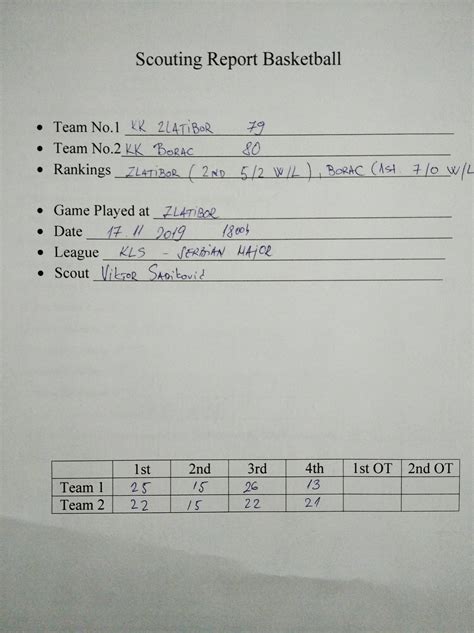 Scouting Report Basketball
• Team No.1 KK ZLATIBOR 79
• Team No.2 KK BORAC 80
• Rankings ZLATIBOR ( 2ND 5/2 W/L ) , BORAC ( 1st 7/0 W/L
• Game Played at ZLATIBOR
• Date 17 11 2019 1800h
• League KLS - SERBIAN MAJOR
• Scout Viktor Sadiković
1st 2nd 3rd 4th 1st OT 2nd OT
Team 1 25 15 26 13
Team 2 22 15 22 21